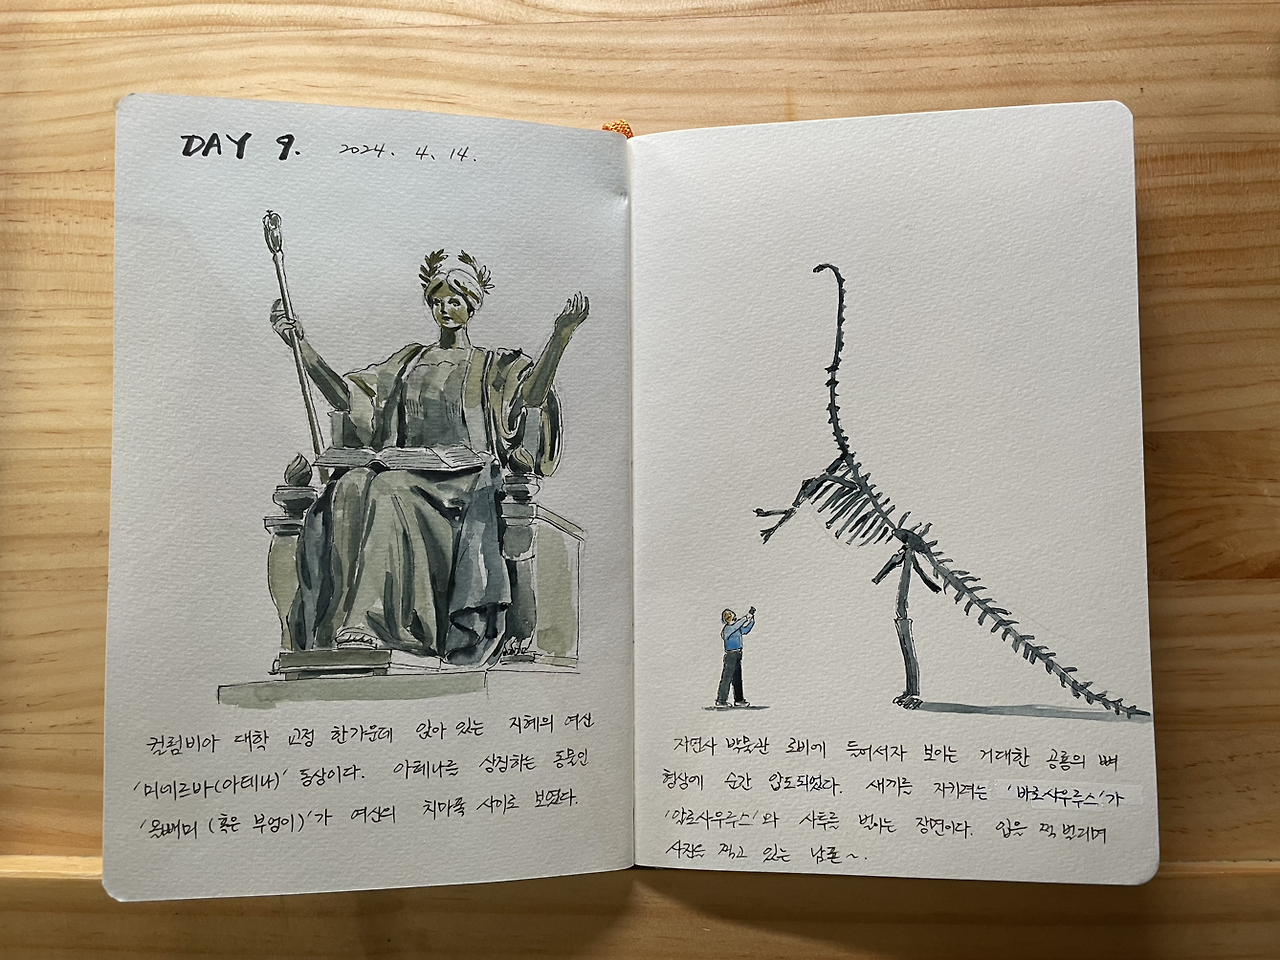 DAY 9. 2024. 4. 14.
컬럼비아 대학 교정 한가운데 앉아 있는 지혜의 여신
'미네르바(아테나)' 동상이다. 아테나를 상징하는 동물인
'올빼미 (혹은 부엉이)'가 여신의 치마폭 사이로 보였다.
자연사 박물관 로비에 들어서자 보이는 거대한 공룡의 뼈
형상에 순간 압도되었다. 새끼를 지키려는 '바로사우루스'가
'알로사우루스'와 사투를 벌이는 장면이다. 입을 쩍 벌리며
사진을 찍고 있는 남편~.